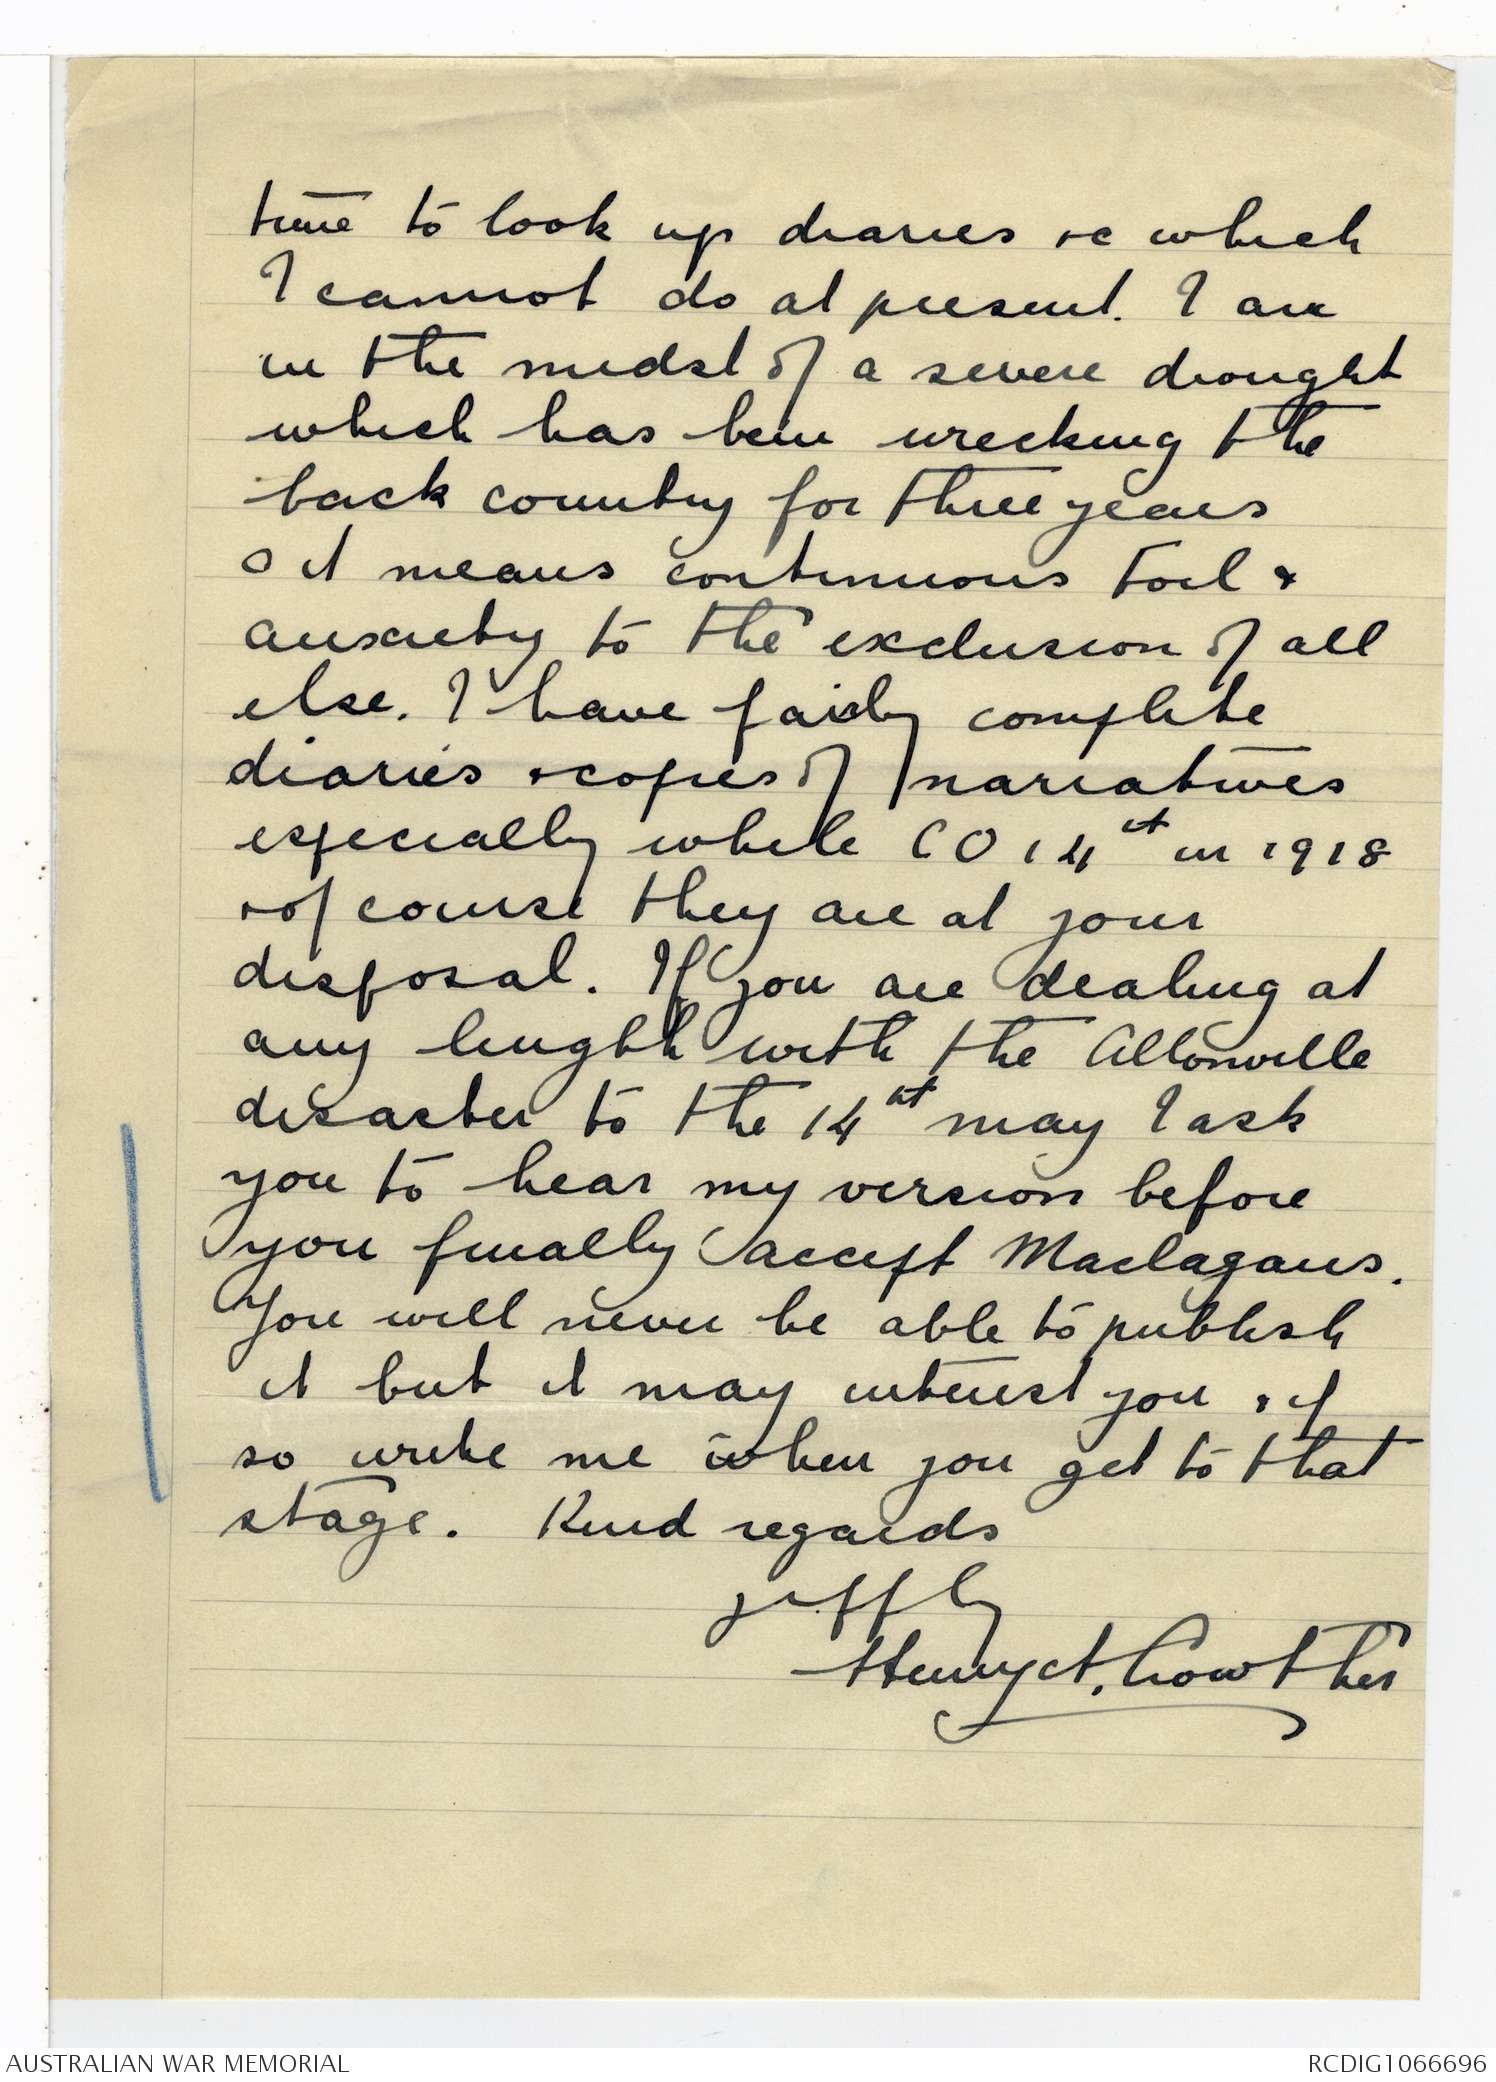 time to look up diaries &c which
I cannot do at present. I am
in the midst of a severe drought
which has been wrecking the
back country for three years
& it means continuous toil &
anxiety to the exclusion of all
else. I have fairly complete
diaries & copies of narratives
especially while CO 14th in 1918
& of course they are at your
disposal. If you are dealing at
any length with the Allonville
disaster to the 14th may I ask
you to hear my version before
you finally accept Maclagans.
You will never be able to publish
it but it may interest you & if
so write me when you get to that
stage. Kind regards
yrffly
Henry A. Crowther
AUSTRALIAN WAR MEMORIAL
RCDIG1066696